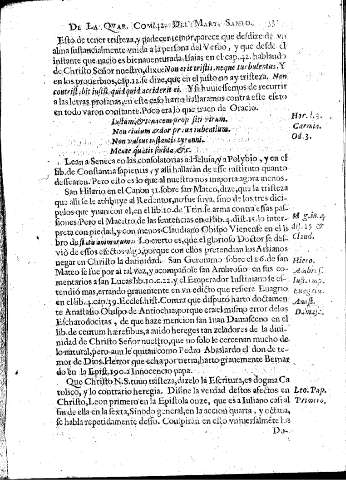 DE LA QUAR. COM. 42. DEL MART. SANTO. 53
Esto de tener tristeza, y padecer temor, parece que desdize de vn
alma sustancialmente vnida a la persona del Verbo, y que desde el
instante que nacio es bienauenturada. Isaias en el cap. 42. hablando
de Christo Señor nuestro, dixo: Non erit tristis, neque turbulentus. Y
en los prouerbios, cap. 12. se dize, que en el justo no ay tristeza. Non
contristabit iustum quidquid acciderit ei. Y si huuiessemos de recurrir
a las letras profanas, en este caso harto hallaramos contra este efeto
en todo varon constante. Poco era lo que traco de Oracio.
Iustum, & tenacem propositi virum. Hor. l. 3.
Non ciuium ardor praua iubentium. Carmin.
Non vultus instantis tyranni. Od. 3.
Mente quatit solida &c.
Lean a Seneca en las consolatorias ad Heluia, y a Polybio, y en el
lib. de Constantia sapientis, y alli hallarán de este instituto quanto
dessearen. Pero esto es lo que al nuestro nos importa agora menos.
San Hilario en el Canon 31. sobre san Mateo, dize, que la tristeza
que alli se le atribuye al Redentor, no fue suya, sino de los tres dicipulos
que yuan con el, en el lib. 10. de Trin. se arma contra essas passiones.
Pero el Maestro de las sentencias en el lib. 4. dist. 15. lo interpreta
con piedad, y con menos Claudiano Obispo Vienense en el lib.
de statu animarum. Lo cierto es, que el glorioso Doctor se desvió
de essos efectos algo, porque con ellos pretendian los Arrianos
negar en Christo la diuinidad. San Geronimo sobre el 26. de san Hiero.
Mateo se fue por ai tal vez, y acompañole san Ambrosio en sus comentarios
a san Lucas lib. 10. c. 22. y el Emperador Iustiniano se estendió
mas, errando grauemente en vn edicto que refiere Euagrio
en lib. 4. cap. 39. Ecclesiast. Contra que disputó harto doctamente
Anastasio Obispo de Antiochia, porque era el mismo error de los
Escharodocitas, de que haze mencion san Iuan Damasceno en el
lib. de centum hæresibus, auiendo hereges tan zeladores de la diuinidad
de Christo Señor nuestro, que no solo le cercenan mucho de
lo natural, pero aun le quitan como Pedro Abaslardo el don de temor
de Dios. Herror que echa por tierra, harto grauemente Bernardo
en la Epist. 190. a Innocencio papa.
Que Christo N. S. tuuo tristeza, dizelo la Escritura, es dogma Catolico,
y lo contrario heregia. Difine la verdad destos afectos en Leo. Pap.
Christo, Leon primero en la Epistola onze, que es a Iuliano casi al Primero.
fin de ella en la sexta, Sinodo general, en la accion quarta, y octaua,
se habla repetidamente desto. Conspiran en ello vniuersalmente los
Do-